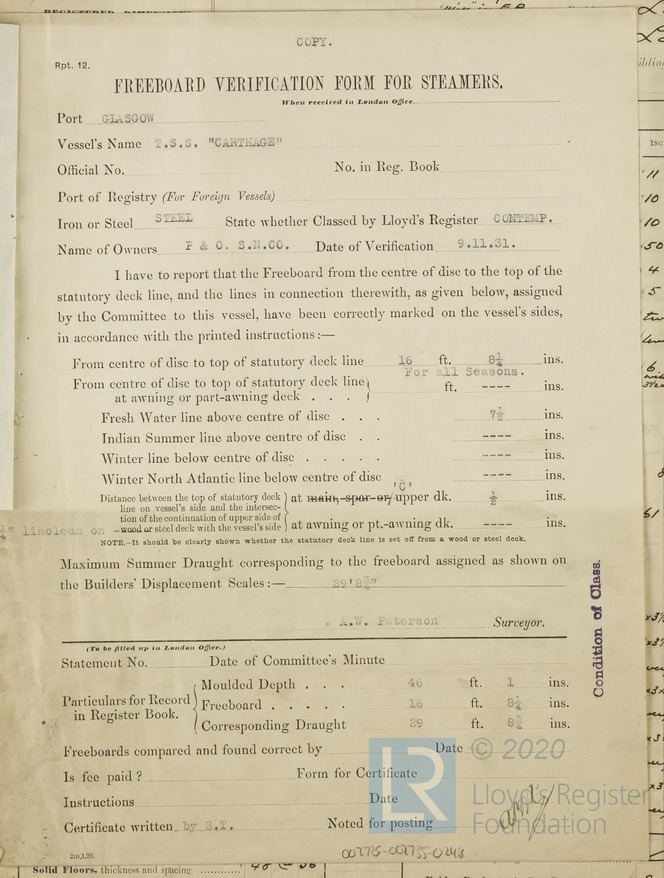 COPY.
Rpt. 12.
FREEBOARD VERIFICATION FORM FOR STEAMERS.
When received in London Office
Port GLASGOW
Vessel's Name T.S.S. "CARTHAGE"
Official No. No. in Reg. Book
Port of Registry (For Foreign Vessels)
Iron or Steel STEEL State whether Classed by Lloyd's Register CONTEMP.
Name of Owners P & O. S.N.CO. Date of Verification 9.11.31.
I have to report that the Freeboard from the centre of disc to the top of the
statutory deck line, and the lines in connection therewith, as given below, assigned
by the Committee to this vessel, have been correctly marked on the vessel's sides,
in accordance with the printed instructions:—
From centre of disc to top of statutory deck line 16 ft. 8¼ ins.
For all Seasons.
From centre of disc to top of statutory deck line
at awning or part-awning deck . . . ft. ---- ins.
Fresh Water line above centre of disc . . . 7½ ins.
Indian Summer line above centre of disc . . ---- ins.
Winter line below centre of disc . . . . . ---- ins.
Winter North Atlantic line below centre of disc ---- ins.
'C'
Distance between the top of statutory deck
line on vessel's side and the intersec-
tion of the continuation of upper side of
wood or steel deck with the vessel's side
at main, spar or/ upper dk. ½ ins.
at awning or pt.-awning dk. ---- ins.
" linoleum on
NOTE.—It should be clearly shown whether the statutory deck line is set off from a wood or steel deck.
Maximum Summer Draught corresponding to the freeboard assigned as shown on
the Builders' Displacement Scales:— 29'8¾"
A.W. Paterson Surveyor.
Condition of Class.
(To be filled up in London Office.)
Statement No. Date of Committee's Minute
Particulars for Record
in Register Book.
Moulded Depth . . . 46 ft. 1 ins.
Freeboard . . . . . 16 ft. 8¼ ins.
Corresponding Draught 29 ft. 8¾ ins.
Freeboards compared and found correct by Date
Is fee paid? Form for Certificate
Instructions Date
Certificate written by B.T. Noted for posting
2m,1,29.
002775-002735-0248
© 2020
LR
Lloyd's Register
Foundation
Solid Floors, thickness and spacing